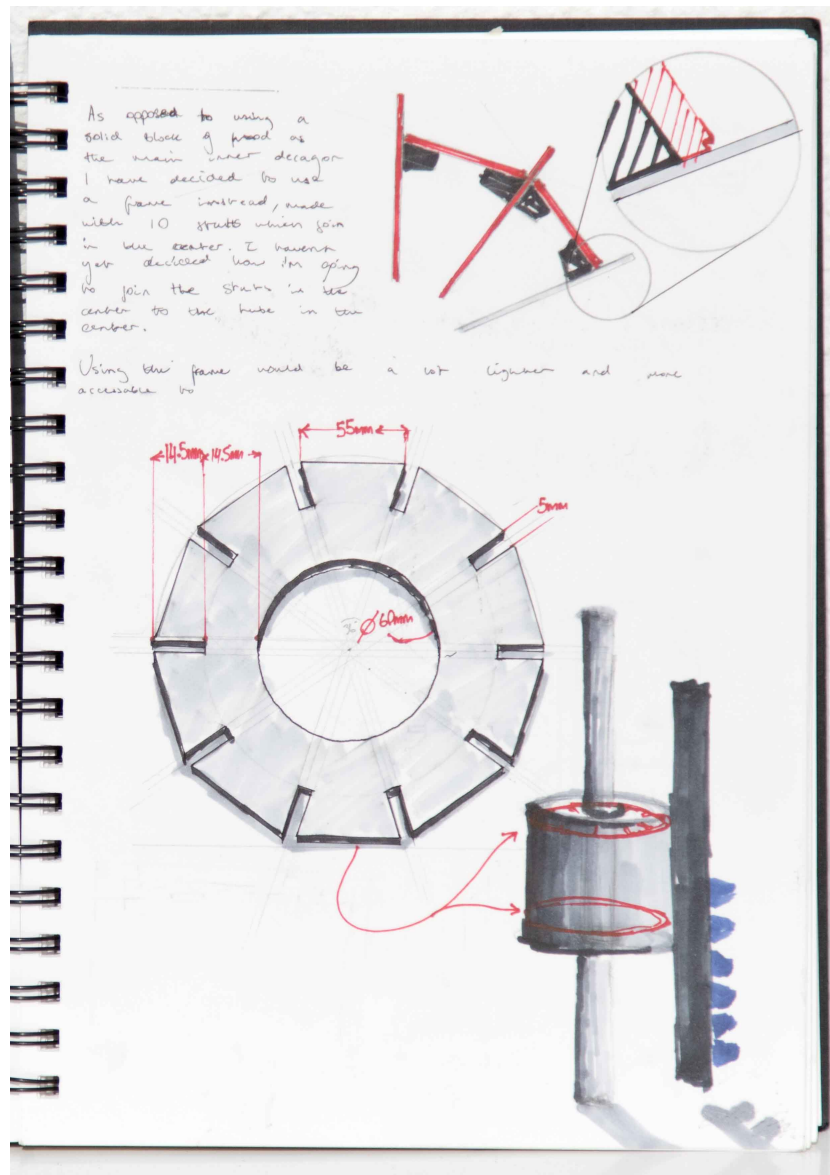 As opposed to using a
solid block of wood as
the main inner decagon
I have decided to use
a frame instead, made
with 10 struts which join
in the center. I havent
yet decided how i'm going
to join the struts in the
center to the tube in the
center.
Using the frame would be a lot lighter and more
accessable to
55mm
14.5mm 14.5mm
5mm
Ø60mm